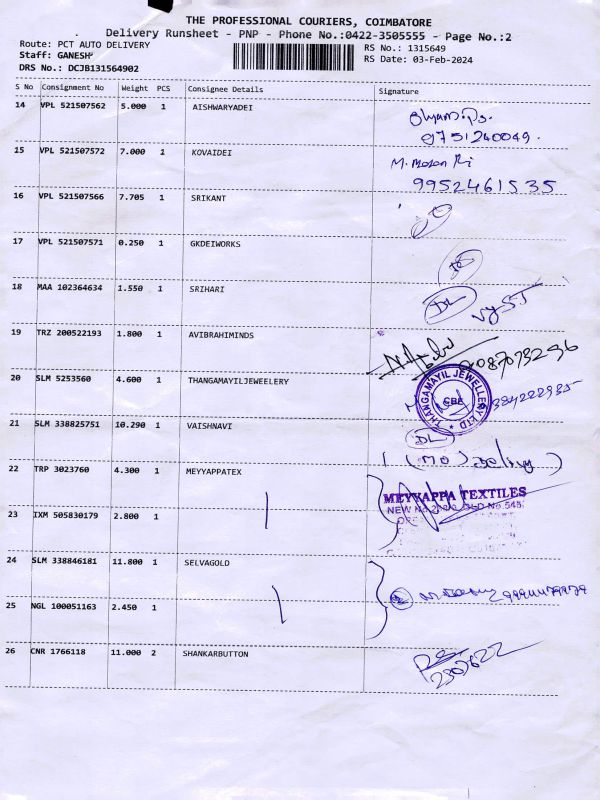 THE PROFESSIONAL COURIERS, COIMBATORE
Delivery Runsheet - PNP - Phone No.:0422-3505555 - Page No.:2
Route: PCT AUTO DELIVERY
RS No.: 1315649
Staff: GANESH
RS Date: 03-Feb-2024
DRS No.: DCJB131564902
S No Consignment No Weight PCS Consignee Details Signature
14 VPL 521507562 5.000 1 AISHWARYADEI
9751240049.
15 VPL 521507572 7.000 1 KOVAIDEI
9952461535
16 VPL 521507566 7.705 1 SRIKANT
17 VPL 521507571 0.250 1 GKDEIWORKS
18 MAA 102364634 1.550 1 SRIHARI DL
19 TRZ 200522193 1.800 1 AVIBRAHIMINDS
20 SLM 5253560 4.600 1 THANGAMAYILJEWEELERY
THANGAMAYIL JEWELLERY LTD
CBE
21 SLM 338825751 10.290 1 VAISHNAVI DL
22 TRP 3023760 4.300 1 MEYYAPPATEX
MEYYAPPA TEXTILES
23 IXM 505830179 2.800 1
24 SLM 338846181 11.800 1 SELVAGOLD
25 NGL 100051163 2.450 1
26 CNR 1766118 11.000 2 SHANKARBUTTON